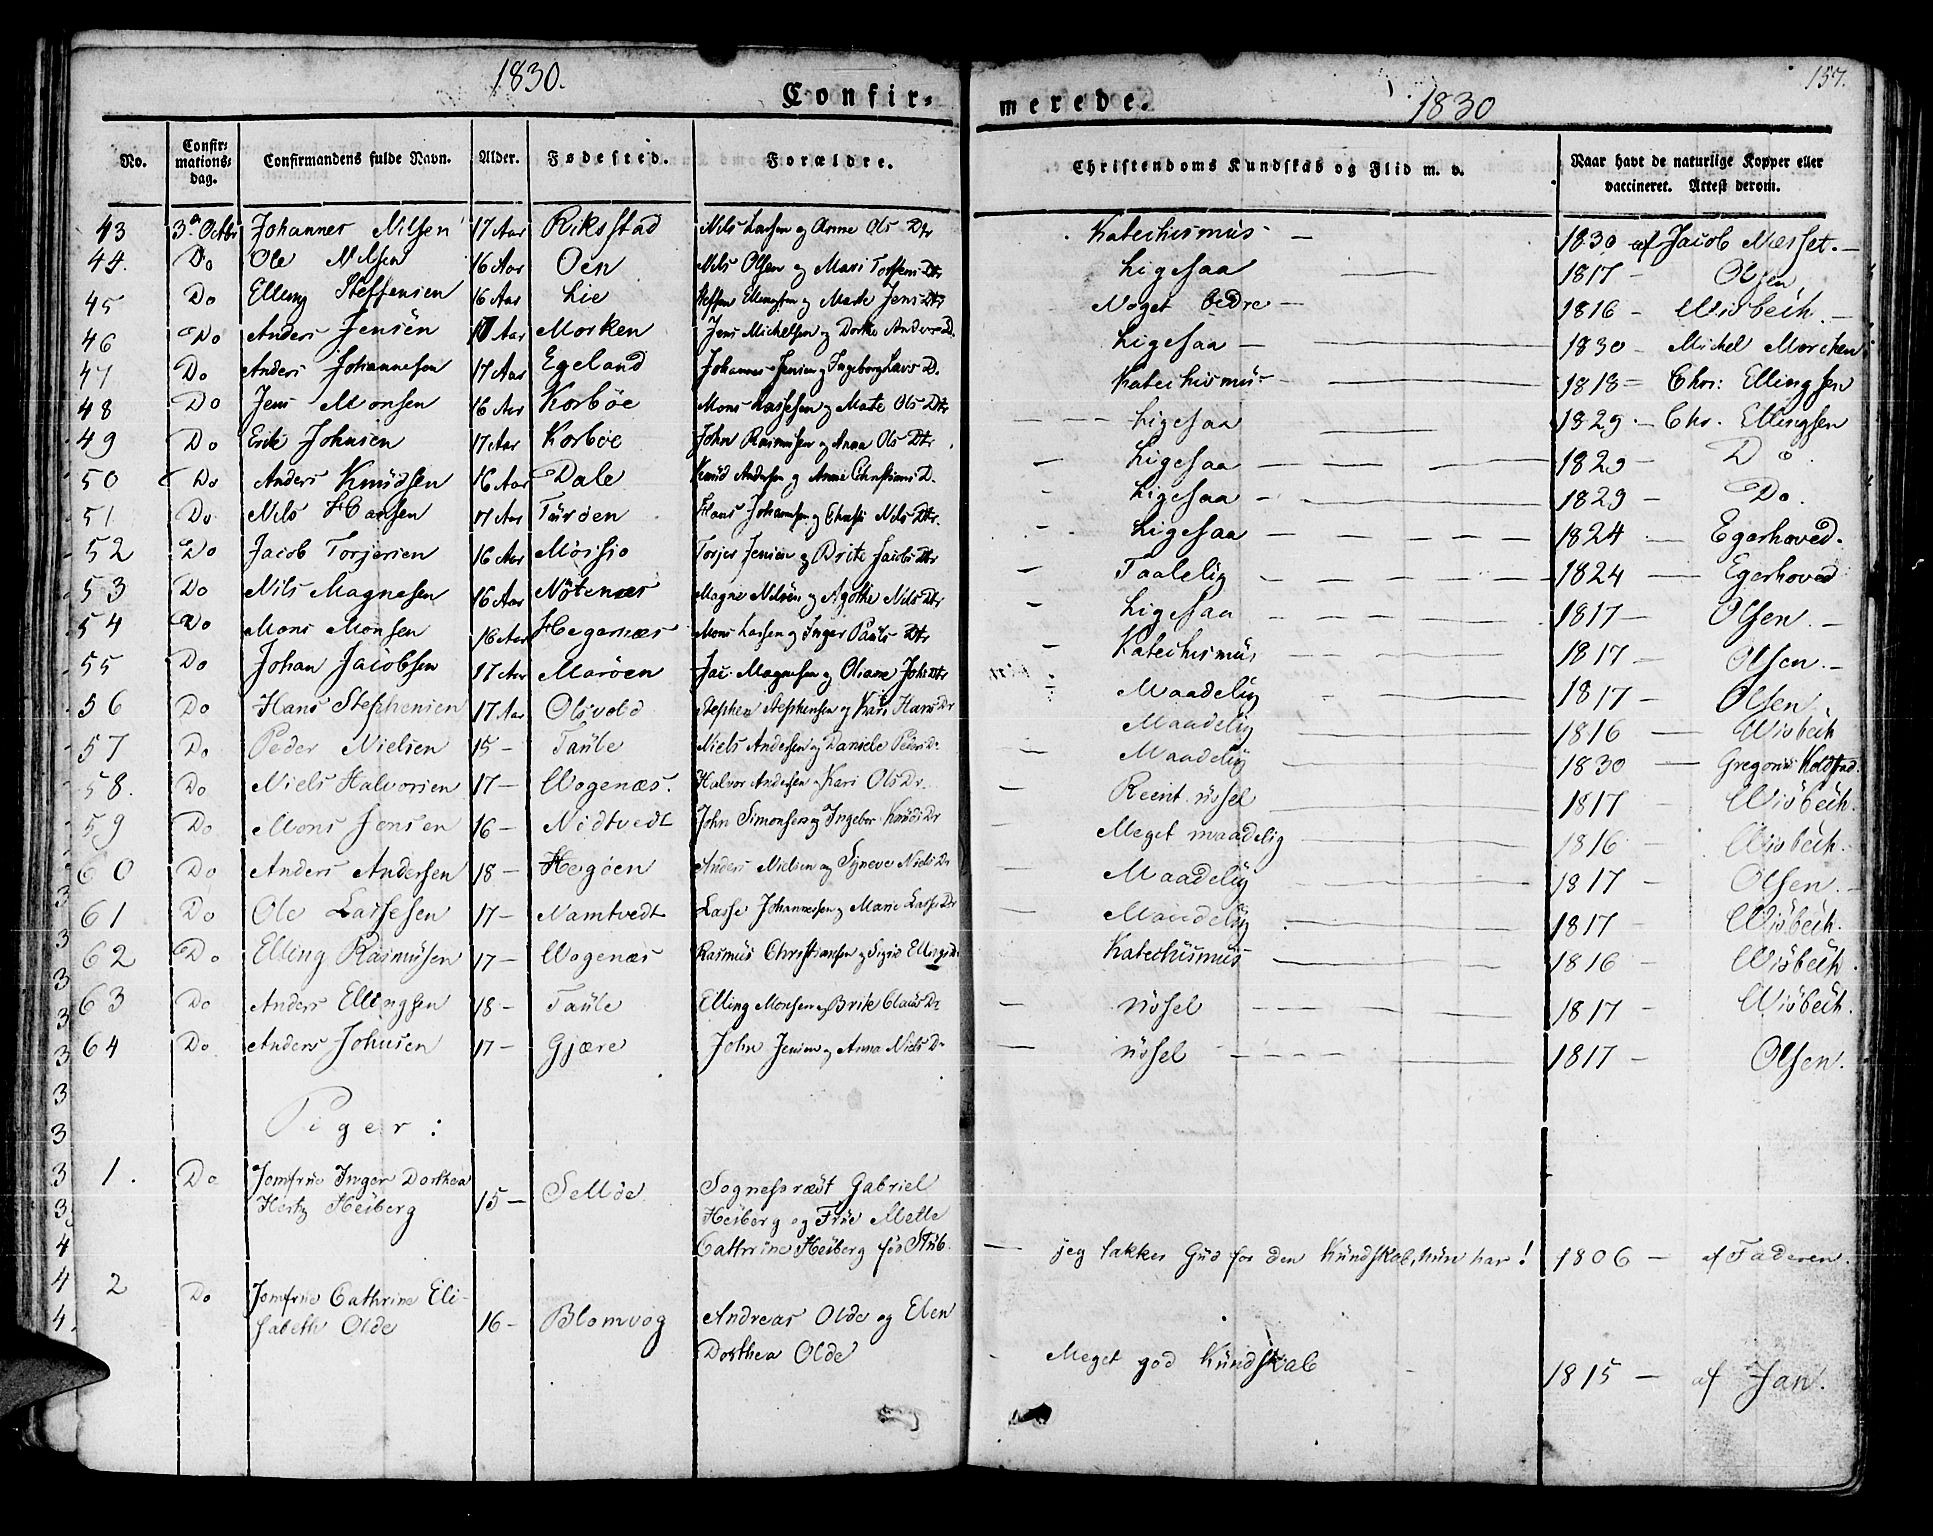 1830. Confir-merede. 1830 157.
No. Confir-mations-dag. Confirmandens fulde Navn. Alder. Fødested. Forældre. Christendoms Kundskab og Flid m. v. Naar havt de naturlige Kopper eller vaccineret. Attest derom.
43 3de Octbr Johannes Nilsen 17 Aar Riksstad Nils Larsen og Anne Ols Dtr Katechismus 1830 af Jacob Næsset.
44. Do Ole Nilsen 16 Aar Oen Nils Olsen og Mari Torstens Dtr Ligesaa 1817 - Olsen
45 Do Elling Steffensen 16 Aar Lie Steffen Ellingsen og Marte Jens Dtr Noget bedre 1816 - Wisbech.
46 Do Anders Jensen 17 Aar Morken Jens Michelsen og Dorte Anders D. Ligesaa 1830 - Michel Morchen
47 Do Anders Johannesen 17 Aar Egeland Johannes Jensen og Ingeborg Lars D. Katechismus 1818 - Chr: Ellingsen
48 Do Jens Monsen 16 Aar Korbøe Mons Lassesen og Mate Ols Dtr Ligesaa 1829 - Chr. Ellingsen
49 Do Erik Johnsen 17 Aar Korbøe John Rasmusen og Anna Ols Dtr Ligesaa 1829 - Do
50 Do Anders Knudsen 16 Aar Dale Knud Andersen og Anne Christians D. Ligesaa 1829 - Do.
51 Do Nils Hansen 17 Aar Turøen Hans Johannsen og Nils Dtr. Ligesaa 1824 - Egerhoved.
52 Do Jacob Torjersen 16 Aar Torjer Jensen og Brite Jacobs Dtr Taalelig 1824 - Egerhoved
53 Do Nils Magnesen 16 Aar Nøtenæs Magne Nilsen og Agathe Nils Dtr Ligesaa 1817 - Olsen.
54 Do Mons Monsen 16 Aar Hegernæs Mons Lassen og Inger Pauls Dtr Katechismus 1817 - Olsen.
55 Do Johan Jacobsen 17 Aar Marøen Jac. Magnesen og Oliane Johs Dtr Maadelig 1817 - Olsen
56 Do Hans Stephensen 17 Aar Olsvold Stephen Stephensen og Kari Hans Dr Maadelig 1816 - Wisbech
57 Do Peder Nielsen 15 - Taule Niels Andersen og Daniele Peders D. Maadelig 1830 - Gregorius Kolstad.
58. Do Niels Halvorsen 17 - Wogenæs. Halvor Andersen Kari Ols Dr. Reent ussel 1817 - Wisbech.
59 Do Mons Jonsen 16 - Nidtvedt John Simonsen og Ingebor Knuds Dr Meget maadelig 1816 - Wisbech.
60 Do Anders Andersen 18 - Hegøen Anders Nielsen og Syneve Niels Dr Maadelig 1817 - Olsen.
61 Do Ole Lassesen 17 - Namtvedt Lasse Johannessen og Marie Lasses Dr Maadelig 1817 - Wisbech.
62 Do Elling Rasmusen 17 - Wogenæs Rasmus Christiansen og Sigrid Ellings D. Katechismus 1816 - Wisbech.
63 Do Anders Ellingsen 18 - Taule Elling Monsen og Brite Claus Dr ussel 1817 - Wisbech.
64 Do Anders Johnsen 17 - Gjære John Jensen og Anna Niels Dr ussel 1817 - Olsen.
Piger:
1. Do Jomfrue Inger Dorthea 15 - Selløe Sognepræst Gabriel
Hertz Heiberg Heiberg og Frue Mette
Cathrine Heiberg fød Stub. jeg takker Gud for den Kundskab, hun har! 1806 - af Faderen.
2 Do Jomfrue Cathrine Eli-
sabeth Olde 16 - Blomvog Andreas Olde og Elen
Dorthea Olde Meget god Kundskab 1815 - af Jan.